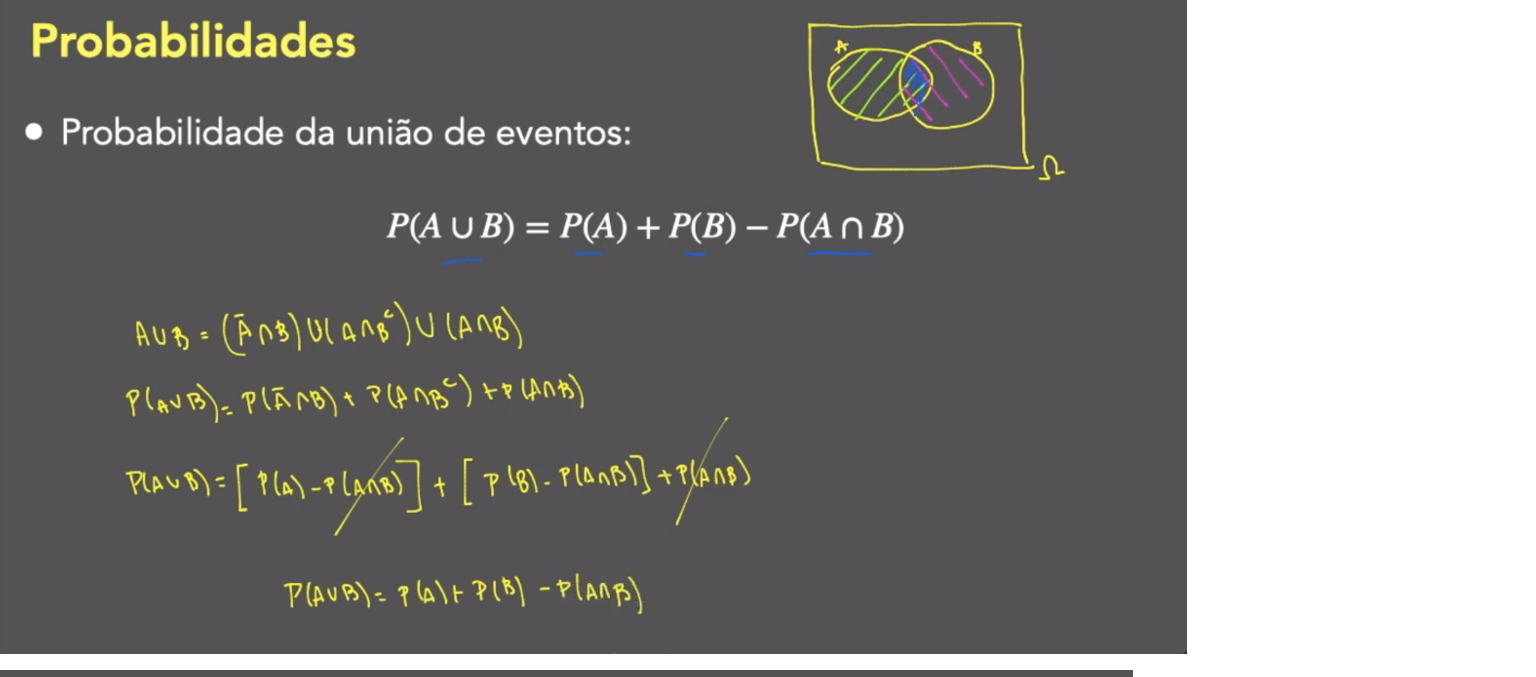 Probabilidades
A B
Ω
• Probabilidade da união de eventos:
P(A ∪ B) = P(A) + P(B) − P(A ∩ B)
A∪B = (Ā∩B) ∪ (A∩Bᶜ) ∪ (A∩B)
P(A∪B) = P(Ā∩B) + P(A∩Bᶜ) + P(A∩B)
P(A∪B) = [P(A) − P(A∩B)] + [P(B) − P(A∩B)] + P(A∩B)
P(A∪B) = P(A) + P(B) − P(A∩B)